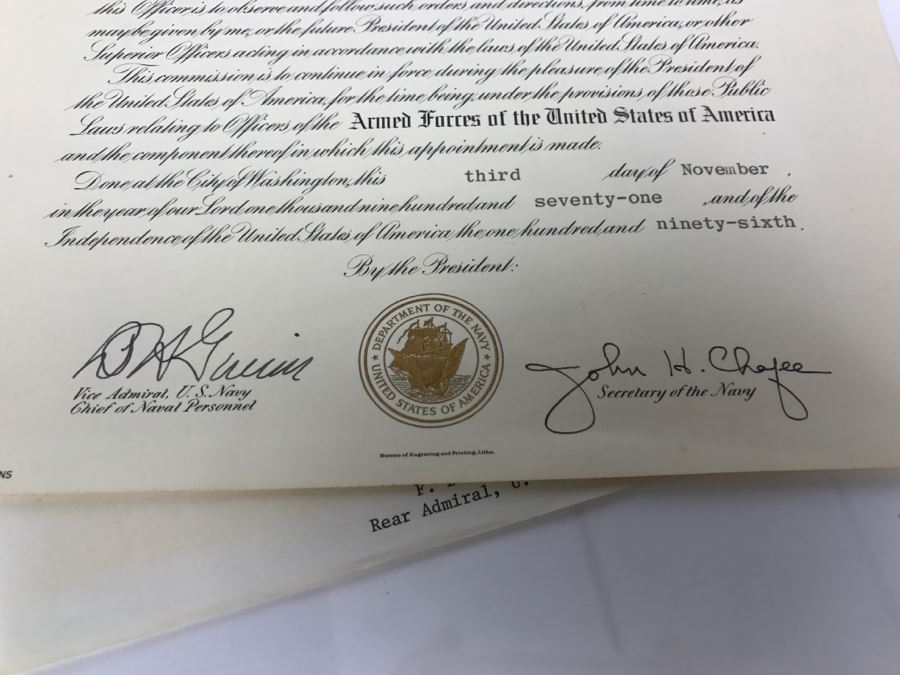 this Officer is to observe and follow such orders and directions, from time to time, as
may be given by me, or the future President of the United States of America, or other
Superior Officers acting in accordance with the laws of the United States of America.
This commission is to continue in force during the pleasure of the President of
the United States of America, for the time being, under the provisions of those Public
Laws relating to Officers of the Armed Forces of the United States of America
and the component thereof in which this appointment is made.
Done at the City of Washington, this third day of November,
in the year of our Lord one thousand nine hundred and seventy-one and of the
Independence of the United States of America, the one hundred and ninety-sixth.
By the President:
Vice Admiral, U.S. Navy
Chief of Naval Personnel
DEPARTMENT OF THE NAVY
UNITED STATES OF AMERICA
John H. Chafee
Secretary of the Navy
Bureau of Engraving and Printing, Litho.
NS
F.
Rear Admiral, U.